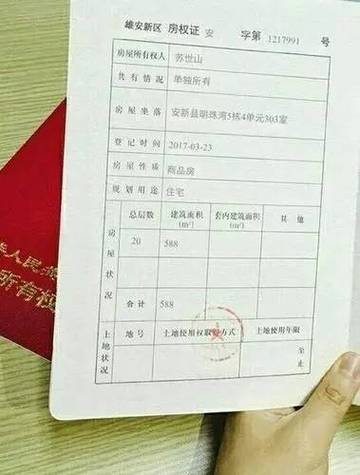 雄安新区 房权证 安 字第 1217991 号
房屋所有权人 苏世山
共有情况 单独所有
房屋坐落 安新县明珠湾5栋4单元303室
登记时间 2017-03-23
房屋性质 商品房
规划用途 住宅
房屋状况
总层数 建筑面积(m²) 套内建筑面积(m²) 其他
20 588
合计 588
土地状况
地号 土地使用权取得方式 土地使用年限
至
止
华人民
所有权